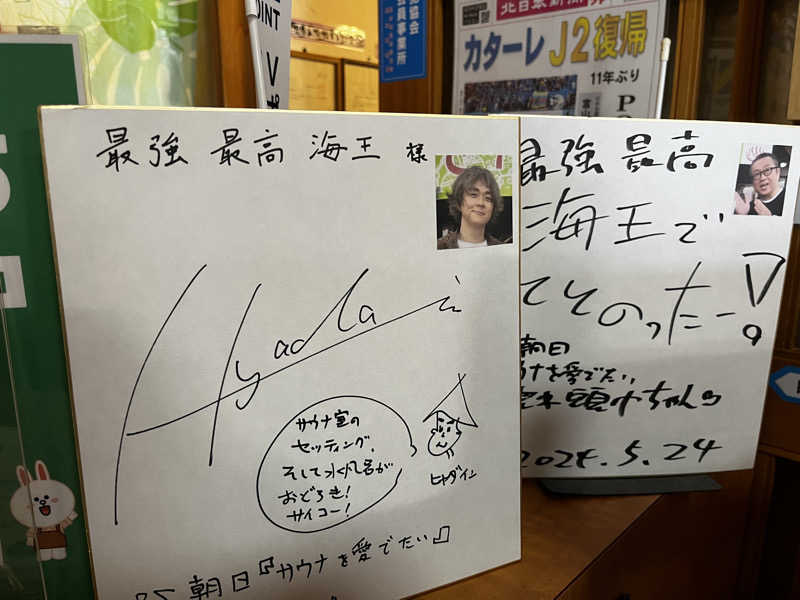 最強 最高 海王 様
Hyadain
サウナ室の
セッティング、
そして水風呂が
おどろき!
サイコー!
ヒャダイン
BS朝日『サウナを愛でたい』
最強 最高
海王で
ととのったー!
朝日
サウナを愛でたい
ちゃん
5.24
カターレ J2復帰
11年ぶり
北日本新聞
会員事業所
POINT